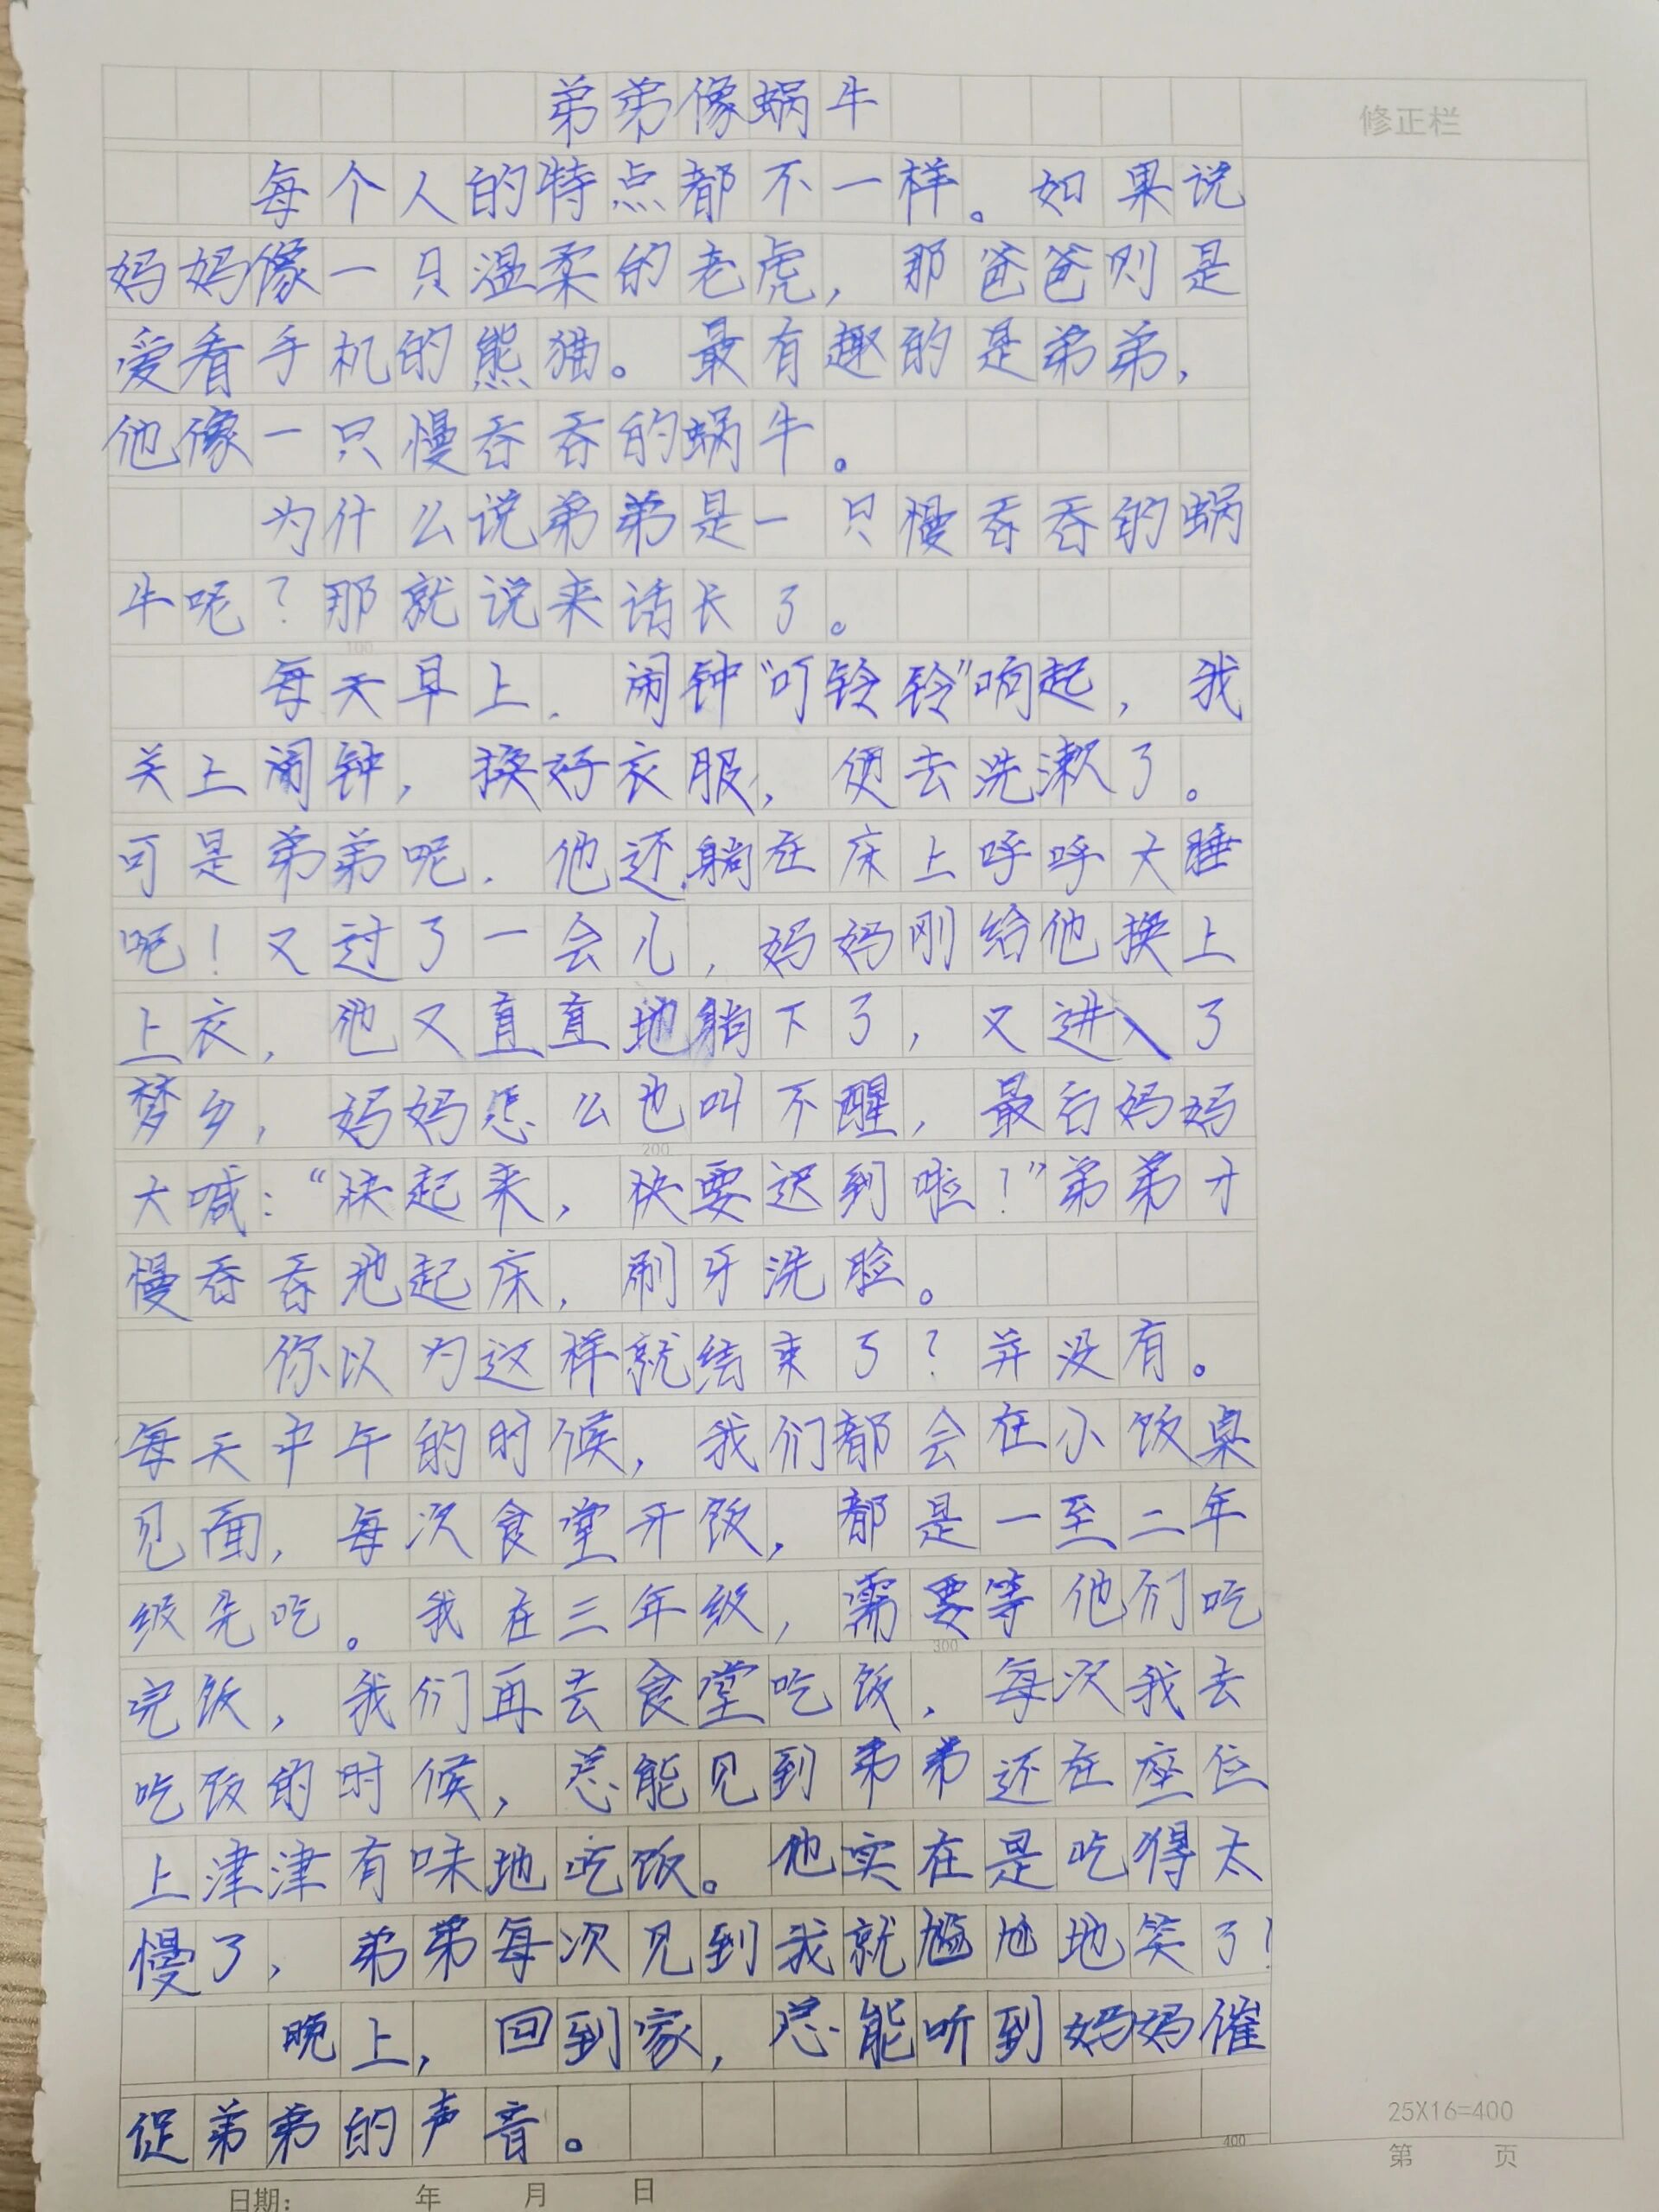 弟弟像蜗牛
修正栏
每个人的特点都不一样。如果说
妈妈像一只温柔的老虎，那爸爸则是
爱看手机的熊猫。最有趣的是弟弟，
他像一只慢吞吞的蜗牛。
为什么说弟弟是一只慢吞吞的蜗
牛呢？那就说来话长了。
100
每天早上，闹钟“叮铃铃”响起，我
关上闹钟，换好衣服，便去洗漱了。
可是弟弟呢，他还躺在床上呼呼大睡
呢！又过了一会儿，妈妈刚给他换上
上衣，他又直直地躺下了，又进入了
梦乡，妈妈怎么也叫不醒，最后妈妈
200
大喊：“快起来，快要迟到啦！”弟弟才
慢吞吞地起床，刷牙洗脸。
你以为这样就结束了？并没有。
每天中午的时候，我们都会在小饭桌
见面，每次食堂开饭，都是一至二年
级先吃。我在三年级，需要等他们吃
300
完饭，我们再去食堂吃饭，每次我去
吃饭的时候，总能见到弟弟还在座位
上津津有味地吃饭。他实在是吃得太
慢了，弟弟每次见到我就尴尬地笑了！
晚上，回到家，总能听到妈妈催
促弟弟的声音。
400
25X16=400
第 页
日期： 年 月 日